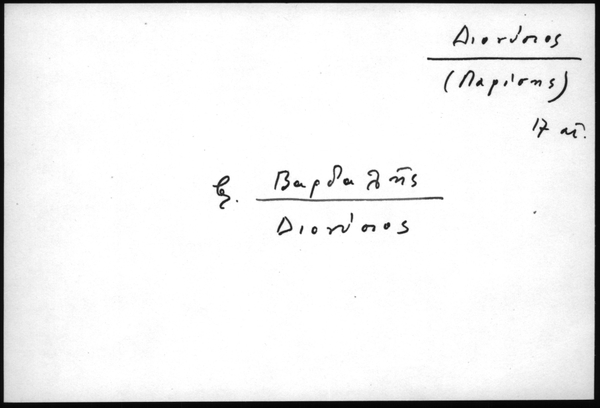 Διονύσιος
(Παρίσης)
17 αἰ.
βλ. Βαρδαλῆς
Διονύσιος